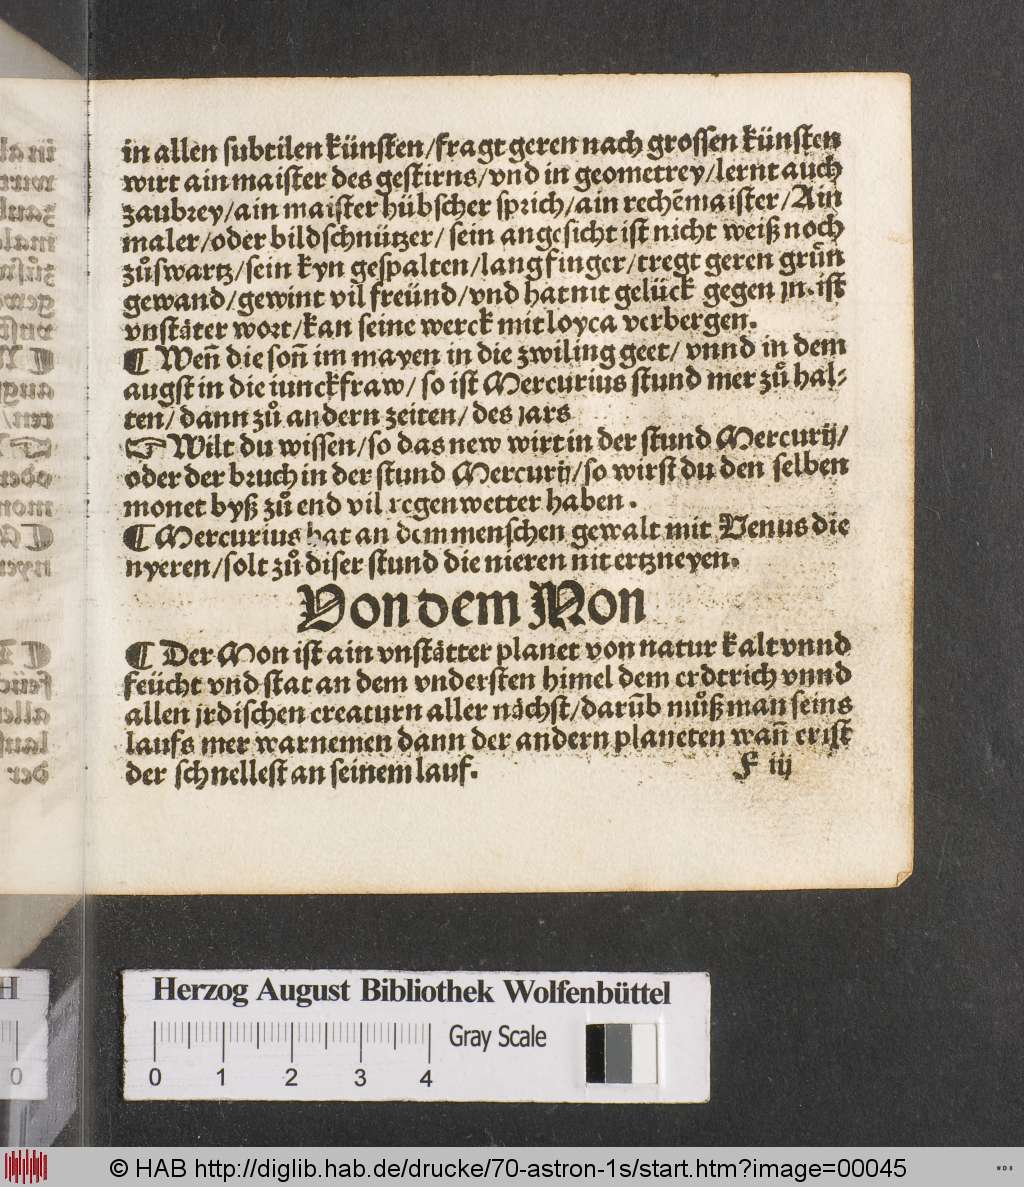 in allen subtilen künsten/fragt geren nach grossen künsten
wirt ain maister des gestirns/vnd in geometrey/lernt auch
zaubrey/ain maister hübscher sprich/ain rechēmaister/Ain
maler/oder bildschnützer/ sein angesicht ist nicht weiß noch
zůswartz/sein kyn gespalten/lang finger/tregt geren grůn
gewand/gewint vil freünd/vnd hat nit gelück gegen jn.ist
vnstäter wort/kan seine werck mit loyca verbergen.
¶ Weñ die soñ im mayen in die zwiling geet/ vnnd in dem
augst in die iunckfraw/ so ist Mercurius stund mer zů hal⸗
ten/ dann zů andern zeiten/ des jars
☞ Wilt du wissen/so das new wirt in der stund Mercurij/
oder der bruch in der stund Mercurij/so wirst du den selben
monet byß zů end vil regenwetter haben.
¶ Mercurius hat an dem menschen gewalt mit Venus die
nyeren/solt zů diser stund die nieren nit ertzneyen.
Von dem Mon
¶ Der Mon ist ain vnstätter planet von natur kalt vnnd
feücht vnd stat an dem vndersten himel dem erdtrich vnnd
allen jrdischen creaturn aller nächst/darūb můß man seins
laufs mer warnemen dann der andern planeten wañ er ist
der schnellest an seinem lauf.
F iij
Herzog August Bibliothek Wolfenbüttel
Gray Scale
0 1 2 3 4
© HAB http://diglib.hab.de/drucke/70-astron-1s/start.htm?image=00045